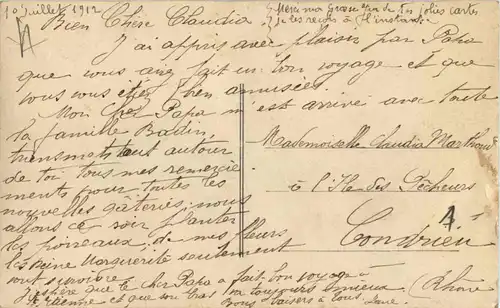 10 Juillet 1912
Merci ma Grande de tes jolies cartes
je les reçois à l'instant
Bien Chère Claudia
J'ai appris avec plaisir par Papa
que vous avez fait un bon voyage et que
vous vous êtes bien amusées.
Mon cher Papa m'est arrivé avec toute
la famille Badin,
transmets tout autour
de toi tous mes remercie-
ments pour toutes tes
nouvelles gâteries; nous
allons ce soir planter
les poireaux; de mes fleurs
les Reine Marguerite seulement
vont survivre
J'espère que le cher Papa a fait bon voyage à
St Etienne et que ton bras va toujours mieux
Bons baisers à tous.
Mademoiselle Claudia
à l'Ile des Pêcheurs
Condrieu
(Rhône